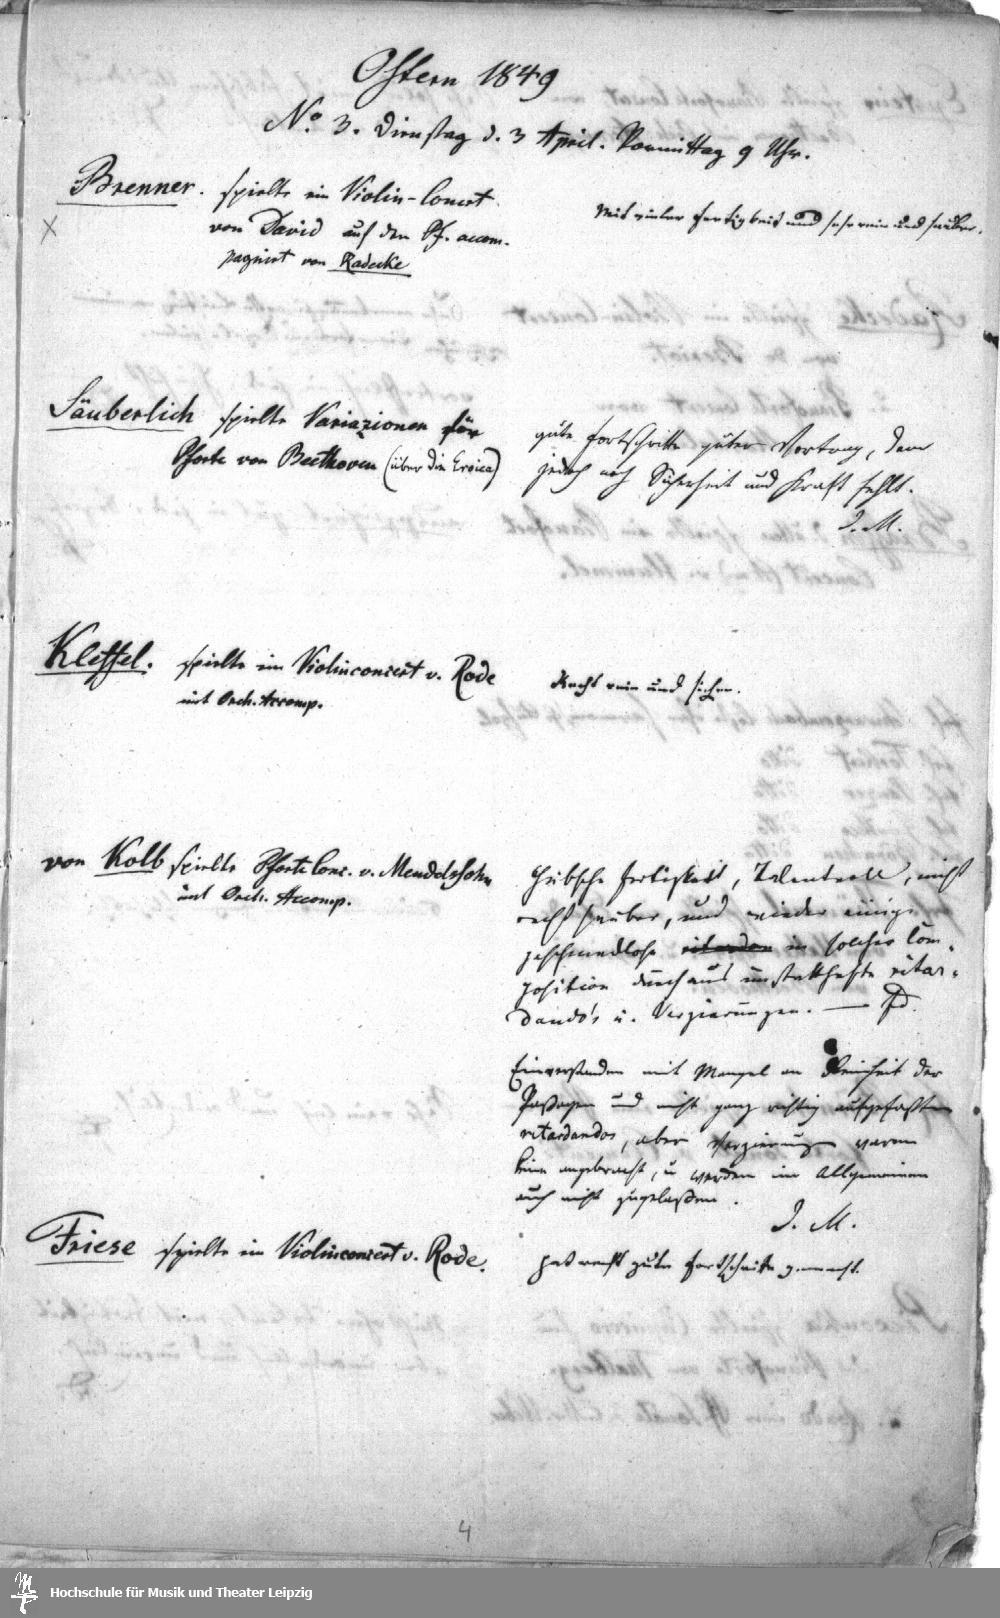 Ostern 1849
No. 3. Dienstag d. 3 April. Vormittag 9 Uhr.
Brenner. spielte ein Violin-Concert
von David auf den Pf. accom-
pagnirt von Radecke
Mit vieler Fertigkeit und sehr rein und sauber.
X
Säuberlich spielte Variazionen für
Pforte von Beethoven (über die Eroica)
gute Fortschritte guter Vortrag, dem
jedoch noch Sicherheit und Kraft fehlt.
I. M.
Kleffel. spielte ein Violinconcert v. Rode
mit Orch. Accomp.
Recht rein und sicher.
von Kolb spielte Pforte Conc. v. Mendelssohn
mit Orch. Accomp.
Hübsche Fertigkeit, Talentvoll, nicht
recht sauber, und wieder einige
geschmacklose ritardan in solcher Com-
position durchaus unstatthafte ritar-
dando's u. Verzierungen. —
Einverstanden mit Mangel an Reinheit der
Paßagen und nicht ganz richtig aufgefaßten
ritardandos, aber Verzierungen waren
keine angebracht, u werden im Allgemeinen
auch nicht zugelaßen.
I. M.
Friese spielte ein Violinconcert v. Rode.
hat recht gute Fortschritte gemacht.
4
Hochschule für Musik und Theater Leipzig